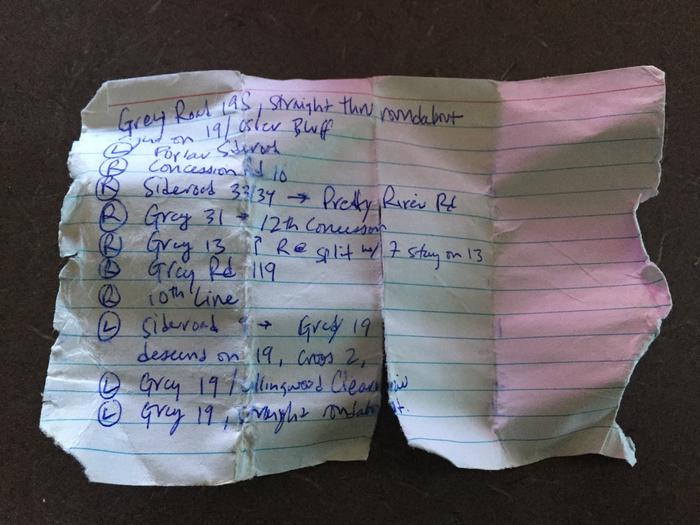 Grey Road 19S, straight thru roundabout
on 19/Osler Bluff
Ⓛ Poplar Sideroad
Ⓡ Concession Rd 10
Ⓡ Sideroad 33/34 → Pretty River Rd
Ⓡ Grey 31 → 12th Concession
Ⓡ Grey 13 ↑ R@ split w/ 7 stay on 13
Grey Rd 119
Ⓡ 10th Line
Ⓛ Sideroad 9 → Grey 19
descend on 19, cross 2,
Ⓛ Grey 19/
Ⓛ Grey 19, straight roundabout.